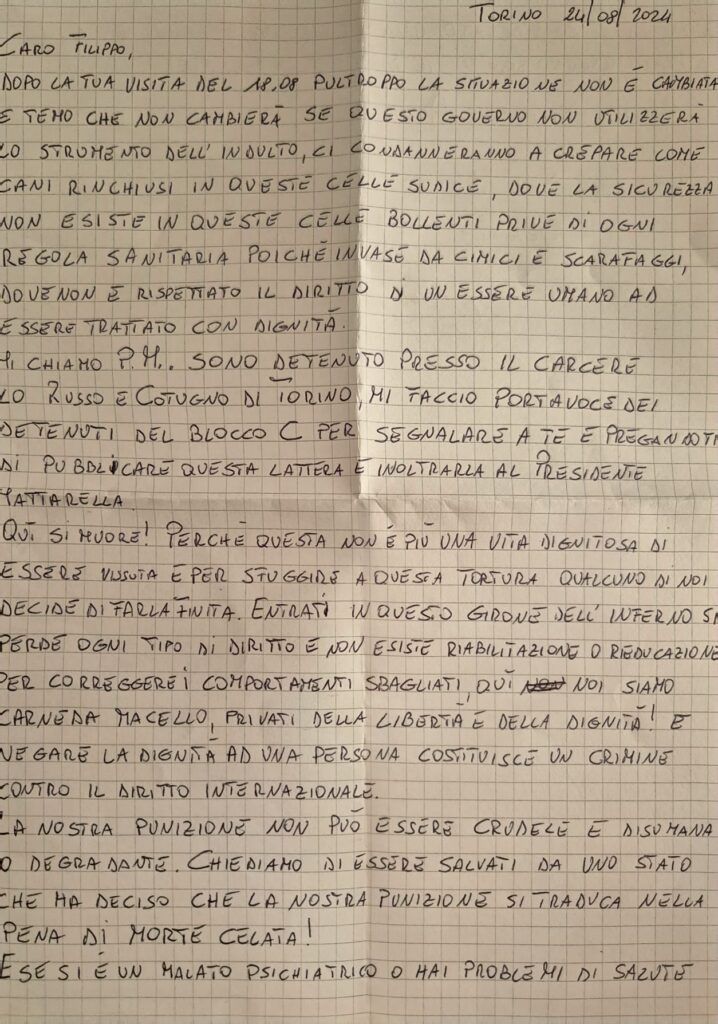 TORINO 24/08/2024
CARO FILIPPO,
DOPO LA TUA VISITA DEL 18.08 PULTROPPO LA SITUAZIONE NON È CAMBIATA
E TEMO CHE NON CAMBIERÀ SE QUESTO GOVERNO NON UTILIZZERÀ
LO STRUMENTO DELL'INDULTO, CI CONDANNERANNO A CREPARE COME
CANI RINCHIUSI IN QUESTE CELLE SUDICE, DOVE LA SICUREZZA
NON ESISTE IN QUESTE CELLE BOLLENTI PRIVE DI OGNI
REGOLA SANITARIA POICHÈ INVASE DA CIMICI E SCARAFAGGI,
DOVE NON È RISPETTATO IL DIRITTO DI UN ESSERE UMANO AD
ESSERE TRATTATO CON DIGNITÀ.
MI CHIAMO P.M.. SONO DETENUTO PRESSO IL CARCERE
LO RUSSO E COTUGNO DI TORINO, MI FACCIO PORTAVOCE DEI
DETENUTI DEL BLOCCO C PER SEGNALARE A TE E PREGANDOTI
DI PUBBLICARE QUESTA LATTERA E INOLTRARLA AL PRESIDENTE
MATTARELLA.
QUI SI MUORE! PERCHÈ QUESTA NON È PIÙ UNA VITA DIGNITOSA DI
ESSERE VISSUTA E PER SFUGGIRE A QUESTA TORTURA QUALCUNO DI NOI
DECIDE DI FARLA FINITA. ENTRATI IN QUESTO GIRONE DELL'INFERNO SI
PERDE OGNI TIPO DI DIRITTO E NON ESISTE RIABILITAZIONE O RIEDUCAZIONE
PER CORREGGERE I COMPORTAMENTI SBAGLIATI, QUI NOI SIAMO
CARNE DA MACELLO, PRIVATI DELLA LIBERTÀ E DELLA DIGNITÀ! E
NEGARE LA DIGNITÀ AD UNA PERSONA COSTITUISCE UN CRIMINE
CONTRO IL DIRITTO INTERNAZIONALE.
LA NOSTRA PUNIZIONE NON PUÒ ESSERE CRUDELE E DISUMANA
O DEGRADANTE. CHIEDIAMO DI ESSERE SALVATI DA UNO STATO
CHE HA DECISO CHE LA NOSTRA PUNIZIONE SI TRADUCA NELLA
PENA DI MORTE CELATA!
E SE SI È UN MALATO PSICHIATRICO O HAI PROBLEMI DI SALUTE